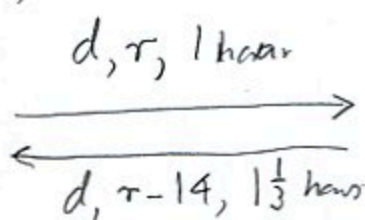 d, r, 1 hour
d, r-14, 1 1/3 hours